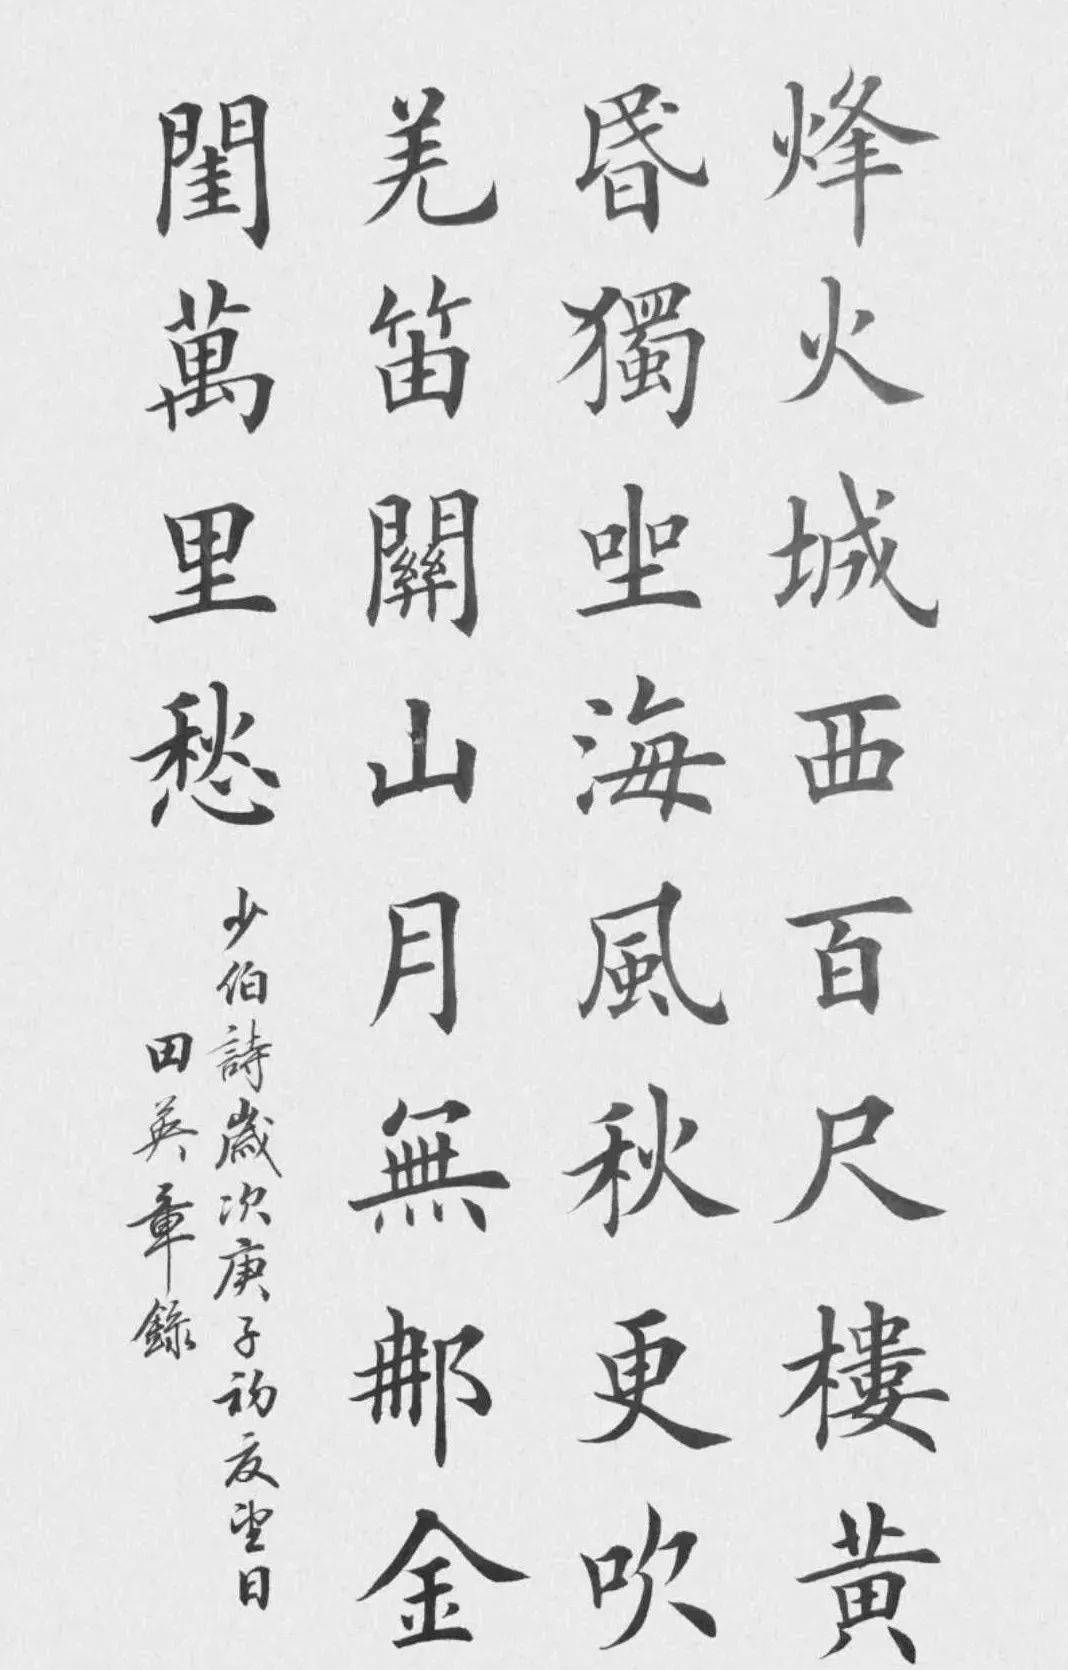 烽火城西百尺樓黃
昬獨坐海風秋更吹
羌笛關山月無那金
閨萬里愁
少伯詩歲次庚子初夏望日
田英章錄